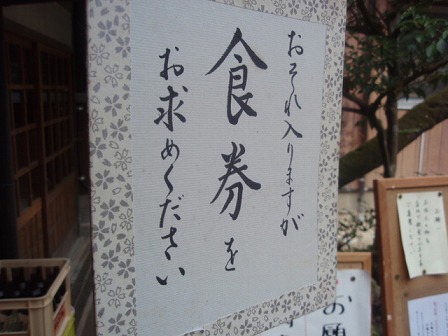 おそれ入りますが
食券を
お求めください
お願